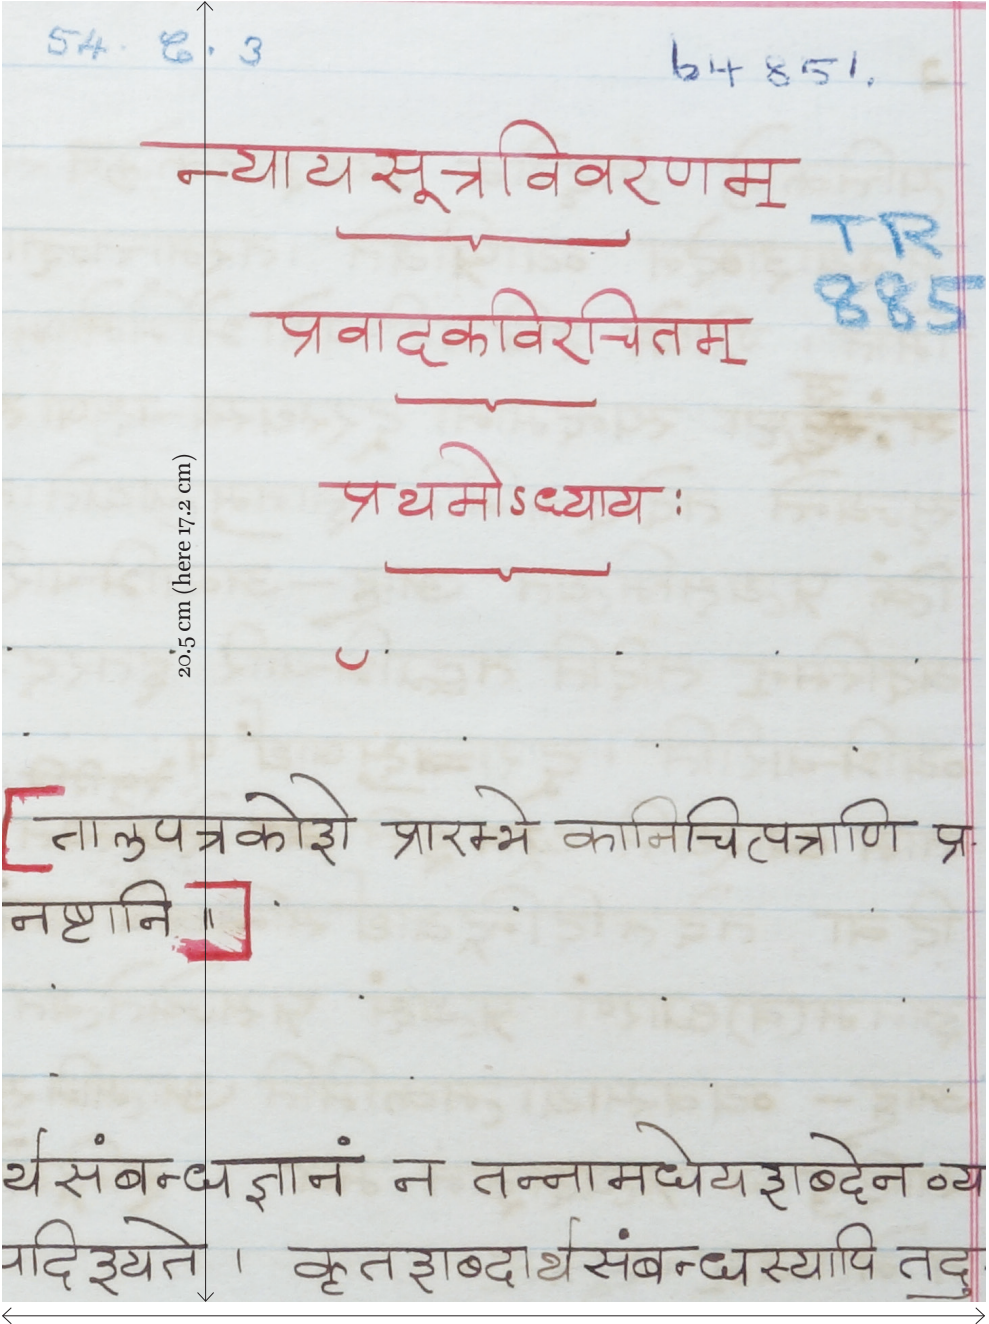 54. C. 3
64851.
न्यायसूत्रविवरणम्
TR
885
प्रवादकविरचितम्
प्रथमोऽध्यायः
20.5 cm (here 17.2 cm)
तालुपत्रकोशे प्रारम्भे कानिचित्पत्राणि प्र-
नष्टानि ॥
र्थसंबन्धज्ञानं न तन्नामधेयशब्देन व्य
पदिश्यते । कृतशब्दार्थसंबन्धस्यापि तदु-